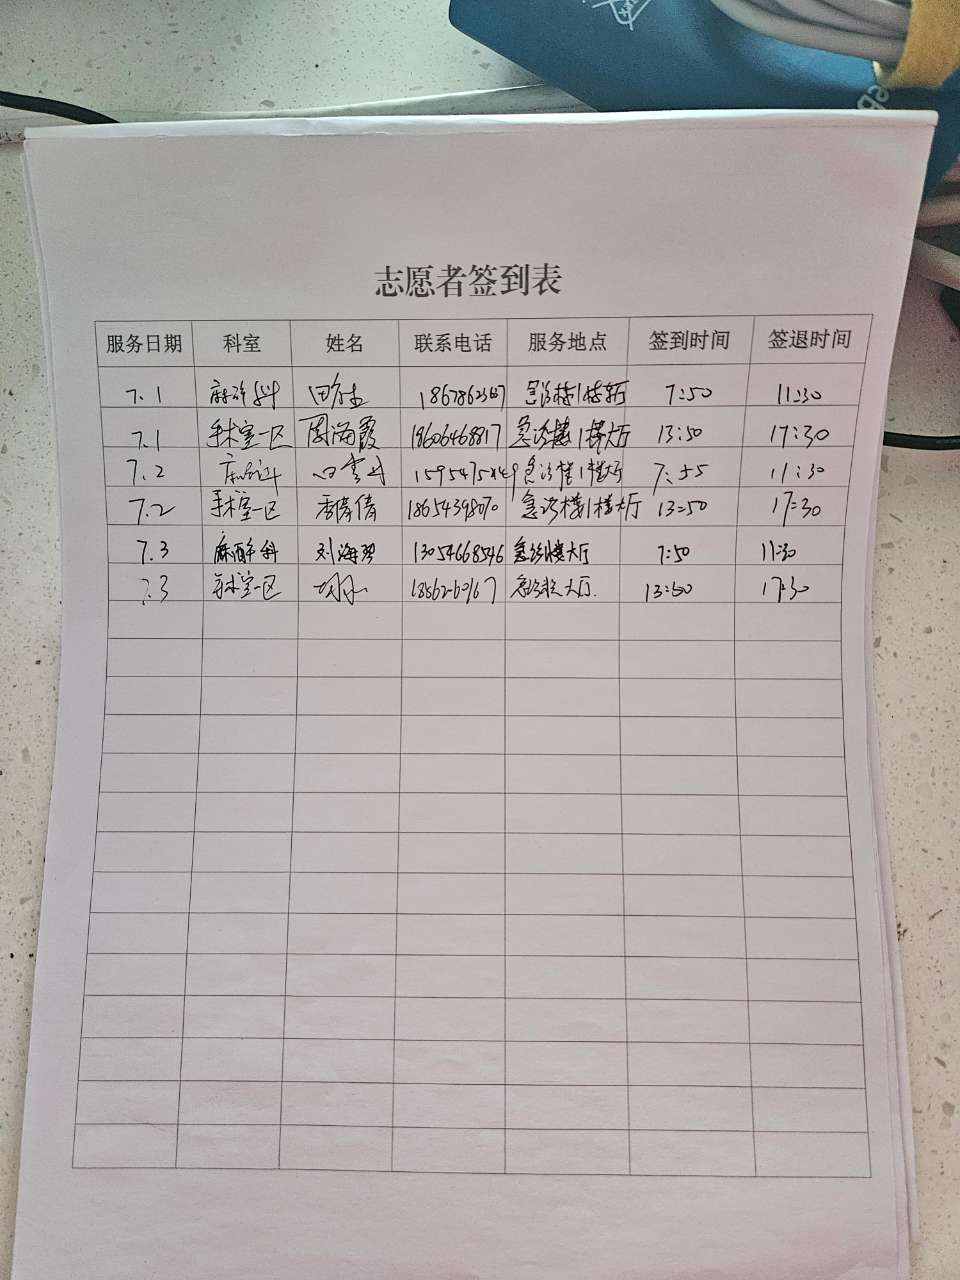 志愿者签到表
服务日期 科室 姓名 联系电话 服务地点 签到时间 签退时间
7.1 麻醉科 急诊楼1楼大厅 7:50 11:30
7.1 手术室一区 周海霞 18606468817 急诊楼1楼大厅 13:50 17:30
7.2 麻醉科 急诊楼1楼大厅 7:55 11:30
7.2 手术室一区 18654398070 急诊楼1楼大厅 13:50 17:30
7.3 麻醉科 刘海 13054668546 急诊楼大厅 7:50 11:30
7.3 手术室一区 急诊楼大厅. 13:50 17:30